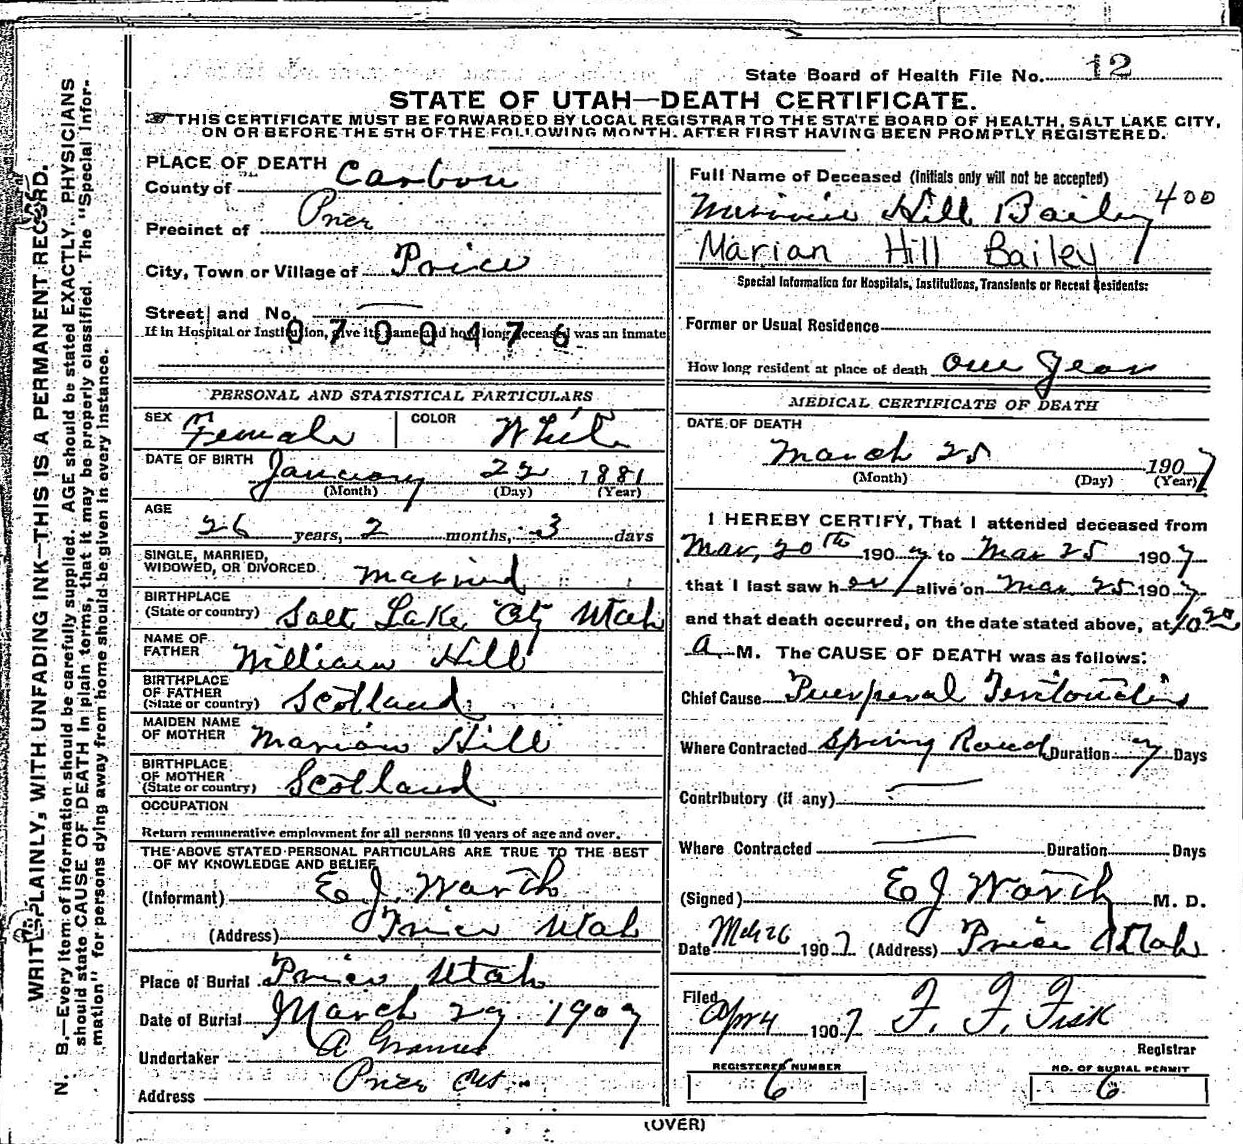 State Board of Health File No. 12
STATE OF UTAH—DEATH CERTIFICATE.
THIS CERTIFICATE MUST BE FORWARDED BY LOCAL REGISTRAR TO THE STATE BOARD OF HEALTH, SALT LAKE CITY,
ON OR BEFORE THE 5TH OF THE FOLLOWING MONTH. AFTER FIRST HAVING BEEN PROMPTLY REGISTERED.
WRITE PLAINLY, WITH UNFADING INK—THIS IS A PERMANENT RECORD.
N. B.—Every item of information should be carefully supplied. AGE should be stated EXACTLY. PHYSICIANS
should state CAUSE OF DEATH in plain terms, that it may be properly classified. The "Special Infor-
mation" for persons dying away from home should be given in every instance.
PLACE OF DEATH
County of Carbon
Precinct of Price
City, Town or Village of Price
Street and No.
If in Hospital or Institution, give its name and how long deceased was an inmate
0700476
PERSONAL AND STATISTICAL PARTICULARS
SEX Female COLOR White
DATE OF BIRTH January 22 1881
(Month) (Day) (Year)
AGE
26 years, 2 months, 3 days
SINGLE, MARRIED,
WIDOWED, OR DIVORCED. married
BIRTHPLACE
(State or country) Salt Lake City Utah
NAME OF
FATHER William Hill
BIRTHPLACE
OF FATHER
(State or country) Scotland
MAIDEN NAME
OF MOTHER Marion Hill
BIRTHPLACE
OF MOTHER
(State or country) Scotland
OCCUPATION
Return remunerative employment for all persons 10 years of age and over.
THE ABOVE STATED PERSONAL PARTICULARS ARE TRUE TO THE BEST
OF MY KNOWLEDGE AND BELIEF
(Informant) E J. Warth
(Address) Price Utah
Place of Burial Price Utah
Date of Burial March 27 1907
Undertaker A
Address Price Ut
Full Name of Deceased (initials only will not be accepted)
Minnie Hill Bailey 400
Marian Hill Bailey
Special Information for Hospitals, Institutions, Transients or Recent Residents:
Former or Usual Residence
How long resident at place of death one year
MEDICAL CERTIFICATE OF DEATH
DATE OF DEATH
March 25 1907
(Month) (Day) (Year)
I HEREBY CERTIFY, That I attended deceased from
Mar, 20th 1907 to Mar 25 1907
that I last saw her alive on Mar 25 1907
and that death occurred, on the date stated above, at 10 20
A M. The CAUSE OF DEATH was as follows:
Chief Cause Puerperal Peritonitis
Where Contracted Spring Duration 7 Days
Contributory (if any)
Where Contracted Duration Days
(Signed) E J Warth M. D.
Date Mch 26 1907 (Address) Price Utah
Filed Apr 4 1907 F. F. Fisk
Registrar
REGISTERED NUMBER
6
NO. OF BURIAL PERMIT
6
(OVER)